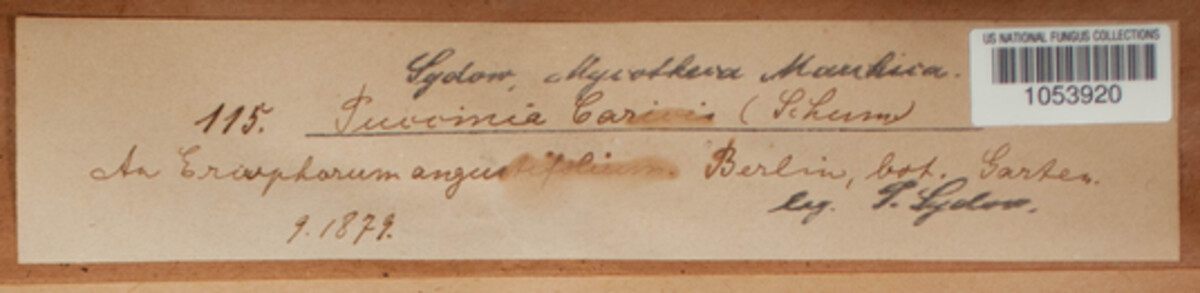 Sydow, Mycotheca Marchica.
US NATIONAL FUNGUS COLLECTIONS
1053920
115. Puccinia Caricis (Schum)
An Eriophorum angustifolium. Berlin, bot. Garten.
leg. P. Sydow.
9.1879.